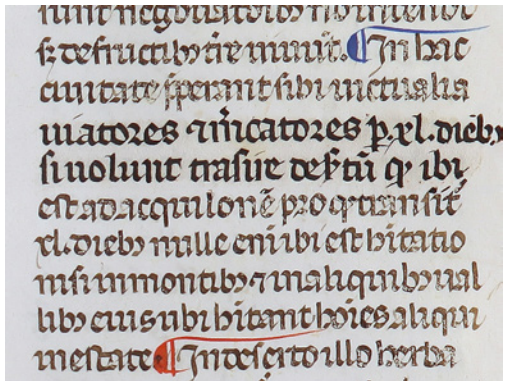 s; de fructibꝫ t̃re uiuūt. ¶ In hac
ciuitate p̃perant sibi uictualia
uiatores ⁊ m̃catores ꝑ xl. diebꝫ
si uolunt trāsire des̃tū qꝫ ibi
est ad acquilonē pro qͦ transit᷑
xl. diebꝫ nulle eni ibi est hitatio
nisi in montibꝫ ⁊ in aliquibꝫ ual
libꝫ eius ubi hitant hoīes aliqui
in estate. ¶ In deserto illo herba